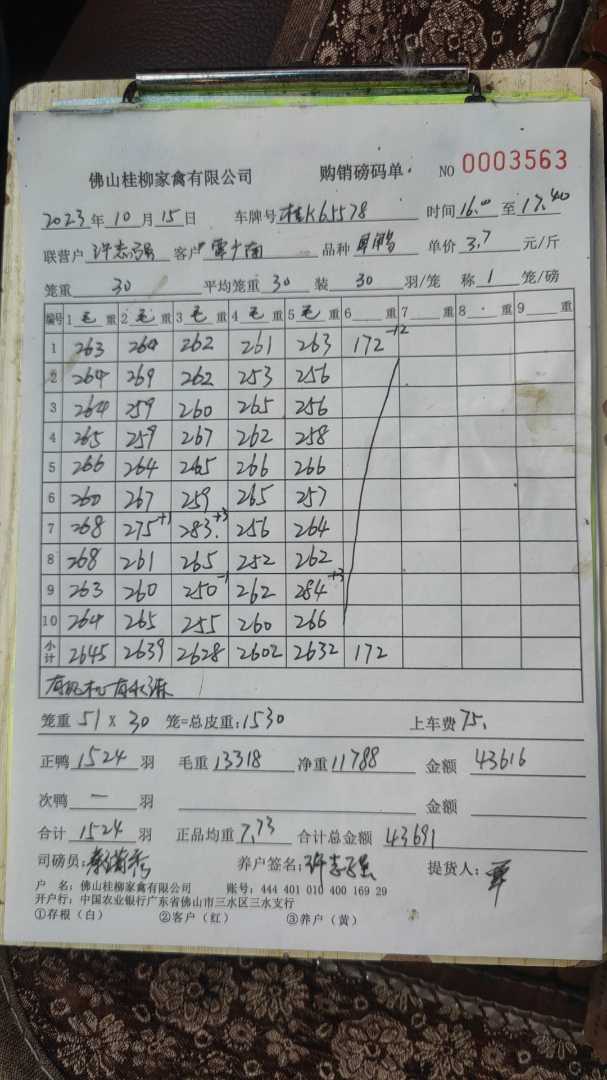 佛山桂柳家禽有限公司 购销磅码单. NO 0003563
2023年10月15日 车牌号桂K65578 时间16.00至17.40
联营户许志强 客户覃少南 品种 单价3.7元/斤
笼重30 平均笼重30装30羽/笼 称1笼/磅
编号 1毛重 2毛重 3毛重 4毛重 5毛重 6重 7重 8重 9重
1 263 264 262 261 263 172-12
2 264 269 262 253 256
3 264 259 260 265 256
4 265 259 267 262 258
5 266 264 265 266 266
6 260 267 259 265 257
7 268 275+1 283.+3 256 264
8 268 261 265 252 262
9 263 260 250-1 262 284+3
10 264 265 255 260 266
小计 2645 2639 2628 2602 2632 172
笼重51X30笼=总皮重:1530 上车费75.
正鸭1524羽 毛重13318 净重11788 金额43616
次鸭一羽 金额
合计1524羽 正品均重7.73 合计总金额43691
司磅员: 养户签名:许志强 提货人:覃
户 名:佛山桂柳家禽有限公司 账号:444 401 010 400 169 29
开户行:中国农业银行广东省佛山市三水区三水支行
①存根(白) ②客户(红) ③养户(黄)